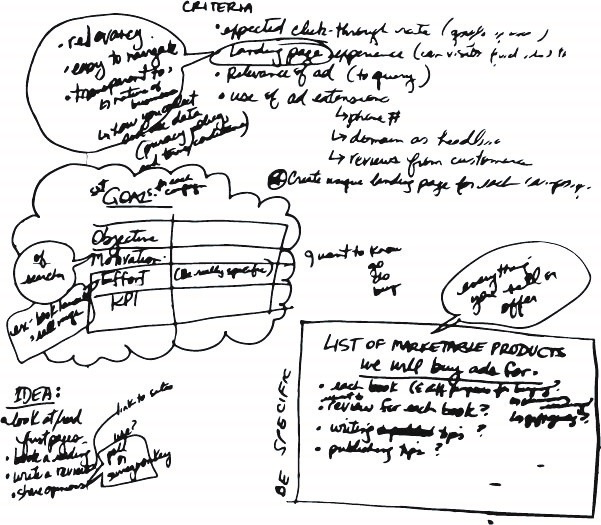 CRITERIA
• expected click-through rate (
• landing page experience (can visitors find
• Relevance of ad (to query)
• use of ad extensions
↳ phone #
↳ domain as headline
↳ reviews from customers
Create unique landing page for each campaign
• relevancy
• easy to navigate
• transparent to,
↳ nature of
business
↳ how you collect
and use data
(privacy policy
and terms/conditions)
set GOALS for each
campaign
Objective
Motivation
Effort (Be really specific)
KPI
of
searcher
ex: book
I want to know
go
do
buy
everything
you sell or
offer
LIST OF MARKETABLE PRODUCTS
we will buy ads for.
• each book (
• review for each book?
• writing tips ?
• publishing tips ?
BE SPECIFIC
IDEA:
• look at
first pages
• book a reading
• write a review
• share opinions
link to
use?
poll
or
surveymonkey